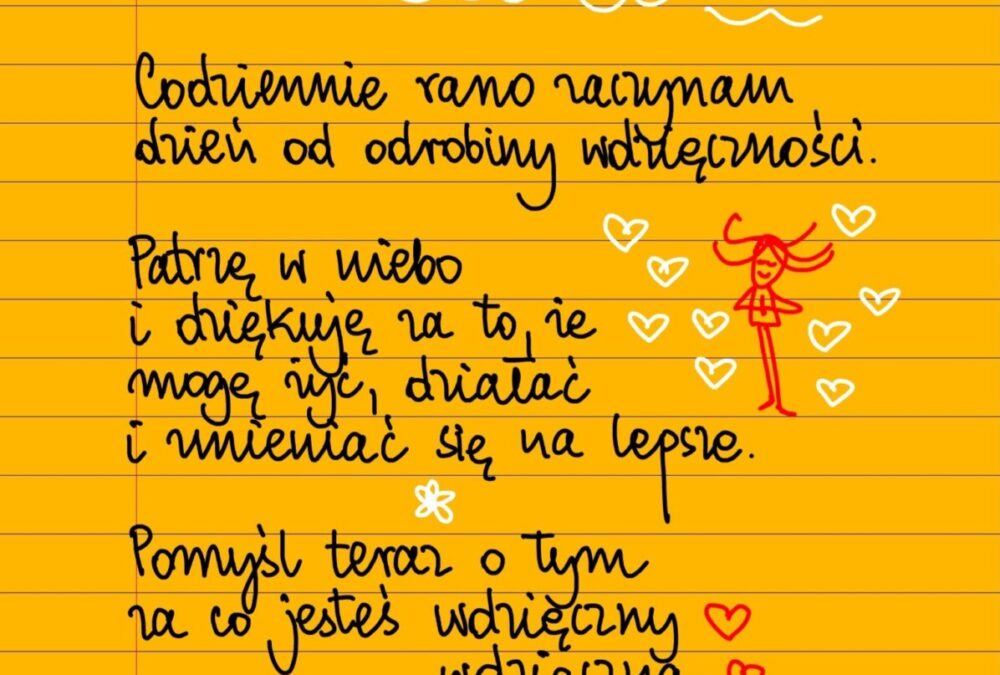 Codziennie rano zaczynam
dzień od odrobiny wdzięczności.
Patrzę w niebo
i dziękuję za to, że
mogę żyć, działać
i zmieniać się na lepsze.
Pomyśl teraz o tym
za co jesteś wdzięczny
wdzięczna